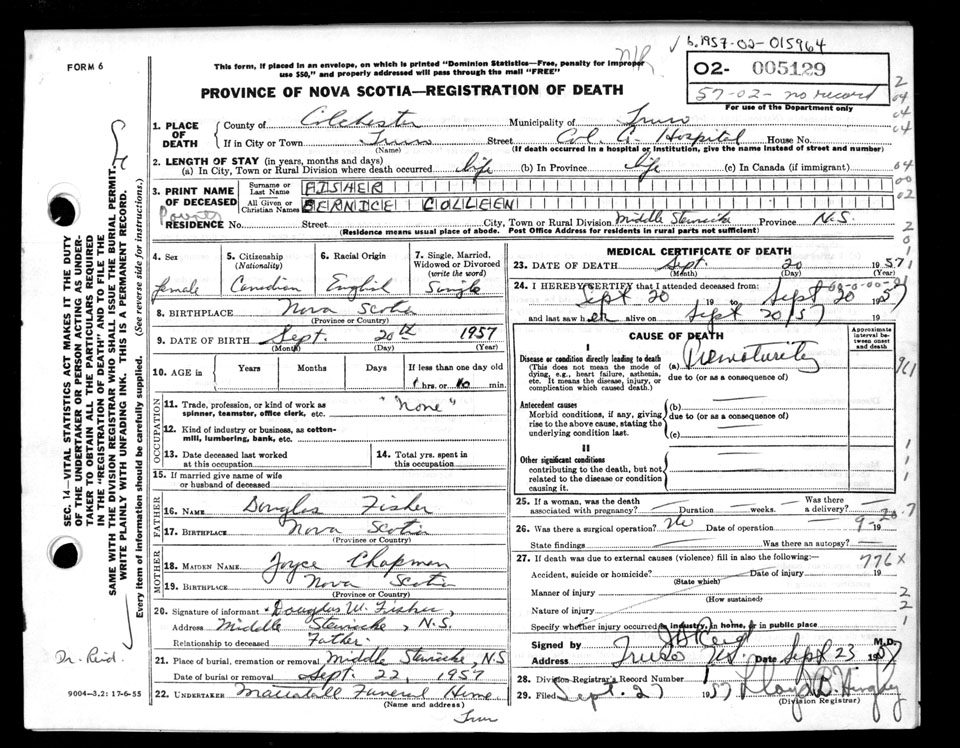 √ b.1957-02-015964
FORM 6
This form, if placed in an envelope, on which is printed "Dominion Statistics—Free, penalty for improper
use $50," and properly addressed will pass through the mail "FREE"
N/R
02- 005129
57-02- no record
For use of the Department only
PROVINCE OF NOVA SCOTIA—REGISTRATION OF DEATH
1. PLACE OF DEATH
County of Colchester Municipality of Truro
If in City or Town Truro Street Col. Co. Hospital House No.
(Name) (If death occurred in a hospital or institution, give the name instead of street and number)
2. LENGTH OF STAY (in years, months and days)
(a) In City, Town or Rural Division where death occurred life (b) In Province life (c) In Canada (if immigrant)
3. PRINT NAME OF DECEASED
Surname or Last Name FISHER
All Given or Christian Names BERNICE COLLEEN
Parents
RESIDENCE No. Street City, Town or Rural Division Middle Stewiacke Province N.S.
(Residence means usual place of abode. Post Office Address for residents in rural parts not sufficient)
4. Sex
female
5. Citizenship (Nationality)
Canadian
6. Racial Origin
English
7. Single, Married, Widowed or Divorced (write the word)
Single
8. BIRTHPLACE Nova Scotia
(Province or Country)
9. DATE OF BIRTH Sept. 20th 1957
(Month) (Day) (Year)
10. AGE in Years Months Days If less than one day old
1 hrs. or 10 min.
OCCUPATION
11. Trade, profession, or kind of work as spinner, teamster, office clerk, etc. "None"
12. Kind of industry or business, as cotton-mill, lumbering, bank, etc.
13. Date deceased last worked at this occupation
14. Total yrs. spent in this occupation
15. If married give name of wife or husband of deceased
FATHER
16. NAME Douglas Fisher
17. BIRTHPLACE Nova Scotia
(Province or Country)
MOTHER
18. MAIDEN NAME Joyce Chapman
19. BIRTHPLACE Nova Scotia
(Province or Country)
20. Signature of informant Douglas W. Fisher,
Address Middle Stewiacke, N.S.
Relationship to deceased Father.
21. Place of burial, cremation or removal Middle Stewiacke, N.S
Date of burial or removal Sept. 22, 1957
22. UNDERTAKER Funeral Home
(Name and address)
Truro
MEDICAL CERTIFICATE OF DEATH
23. DATE OF DEATH Sept. 20 1957
(Month) (Day) (Year)
24. I HEREBY CERTIFY that I attended deceased from:
Sept 20 19 to Sept 20 1957
and last saw her alive on Sept 20/57 19
CAUSE OF DEATH
Approximate interval between onset and death
I
Disease or condition directly leading to death
(This does not mean the mode of dying, e.g., heart failure, asthenia, etc. It means the disease, injury, or complication which caused death.)
(a) Prematurity
due to (or as a consequence of)
Antecedent causes
Morbid conditions, if any, giving rise to the above cause, stating the underlying condition last.
(b)
due to (or as a consequence of)
(c)
II
Other significant conditions
contributing to the death, but not related to the disease or condition causing it.
25. If a woman, was the death associated with pregnancy? — Duration — weeks. Was there a delivery? —
26. Was there a surgical operation? No Date of operation 19
State findings Was there an autopsy? —
27. If death was due to external causes (violence) fill in also the following:—
Accident, suicide or homicide? Date of injury 19
(State which)
Manner of injury
(How sustained)
Nature of injury
Specify whether injury occurred in industry, in home, or in public place
776 X
Signed by M.D.
Address Truro N.S. Date Sept 23 1957
28. Division Registrar's Record Number
29. Filed Sept. 27 1957
(Division Registrar)
SEC. 14—VITAL STATISTICS ACT MAKES IT THE DUTY
OF THE UNDERTAKER OR PERSON ACTING AS UNDER-
TAKER TO OBTAIN ALL THE PARTICULARS REQUIRED
IN THE "REGISTRATION OF DEATH" AND TO FILE THE
SAME WITH THE DIVISION REGISTRAR WHO SHALL ISSUE THE BURIAL PERMIT.
WRITE PLAINLY WITH UNFADING INK. THIS IS A PERMANENT RECORD.
Every item of information should be carefully supplied. (See reverse side for instructions.)
Dr. Reid.
9004-3.2: 17-6-55